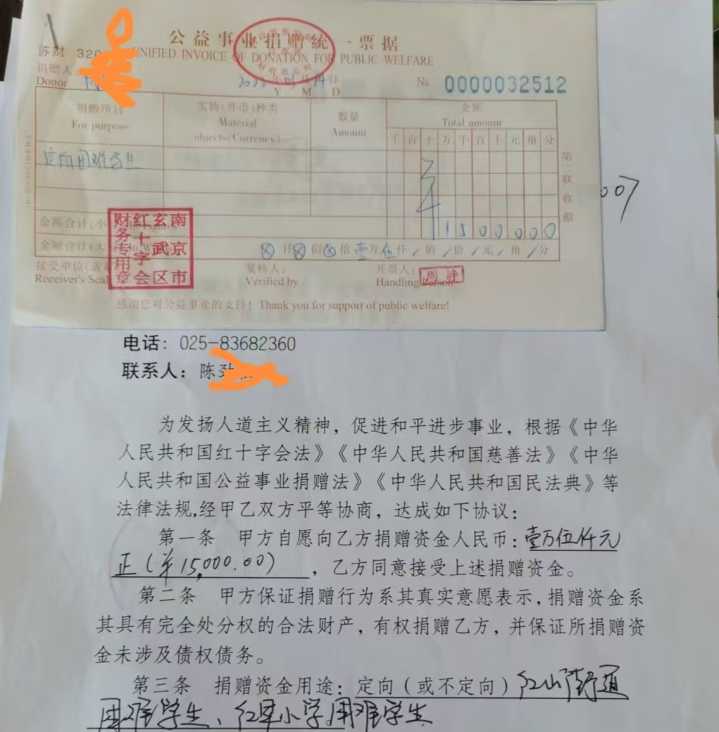 公益事业捐赠统一票据
苏财 320
UNIFIED INVOICE OF DONATION FOR PUBLIC WELFARE
捐赠人
Donor
Y M D
№ 0000032512
捐赠项目
For purpose
实物(外币)种类
Material
objects(Currency)
数量
Amount
金额
Total amount
千百十万千百十元角分
定向困难学生
第二联 收据
007
1500000
金额合计(小
金额合计(大
接受单位(盖
Receiver's Seal
复核人:
Verified by
开票人:
Handling Person
南京市玄武区红十字会财务专用章
感谢您对公益事业的支持! Thank you for support of public welfare!
电话: 025-83682360
联系人: 陈
为发扬人道主义精神, 促进和平进步事业, 根据《中华
人民共和国红十字会法》《中华人民共和国慈善法》《中华
人民共和国公益事业捐赠法》《中华人民共和国民法典》等
法律法规,经甲乙双方平等协商, 达成如下协议:
第一条 甲方自愿向乙方捐赠资金人民币: 壹万伍仟元
正(¥15,000.00), 乙方同意接受上述捐赠资金。
第二条 甲方保证捐赠行为系其真实意愿表示, 捐赠资金系
其具有完全处分权的合法财产, 有权捐赠乙方, 并保证所捐赠资
金未涉及债权债务。
第三条 捐赠资金用途: 定向(或不定向) 红山街道
困难学生、红草小学困难学生